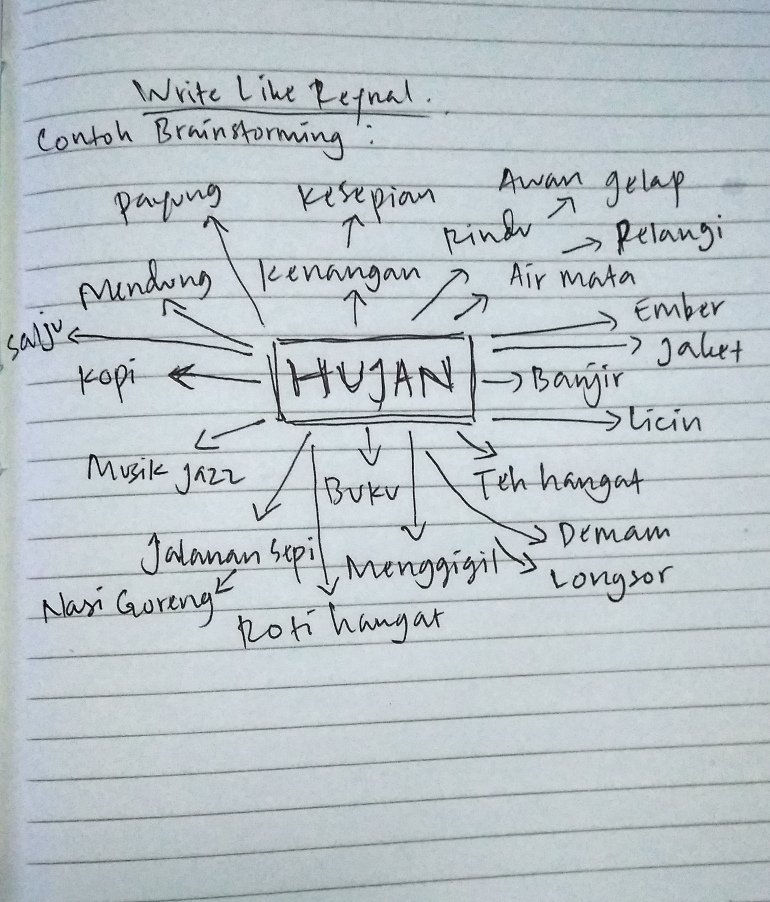 Write Like Reynal.
Contoh Brainstorming :
Payung
Kesepian
Awan gelap
Rindu
Pelangi
Mendung
Kenangan
Air mata
Salju
Ember
Jaket
Kopi
HUJAN
Banjir
Licin
Musik Jazz
Buku
Teh hangat
Jalanan Sepi
Menggigil
Demam
Longsor
Nasi Goreng
Roti hangat